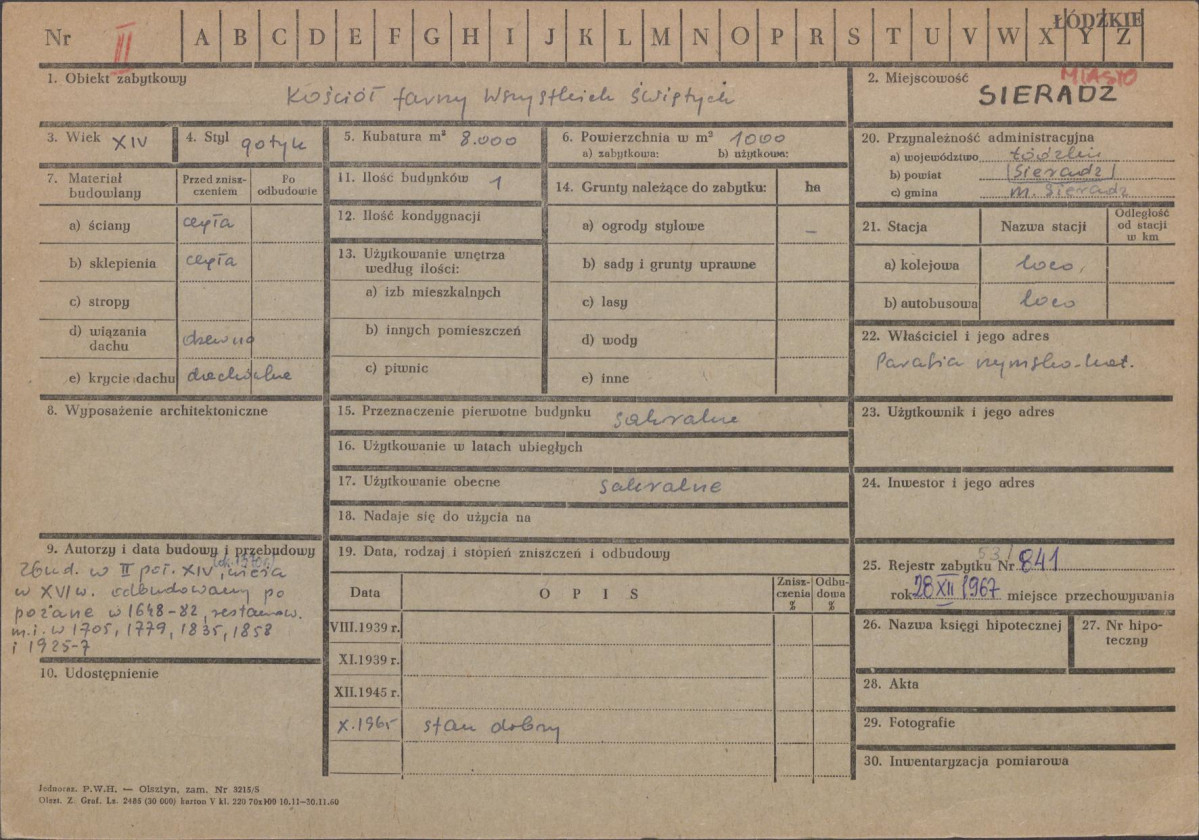 Nr II A B C D E F G H I J K L M N O P R S T U V W X Y Z ŁÓDZKIE
1. Obiekt zabytkowy
Kościół farny Wszystkich Świętych
2. Miejscowość MIASTO
SIERADZ
3. Wiek XIV
4. Styl gotyk
5. Kubatura m³ 8.000
6. Powierzchnia w m² 1000
a) zabytkowa: b) użytkowa:
7. Materiał budowlany
Przed zniszczeniem
Po odbudowie
a) ściany cegła
b) sklepienia cegła
c) stropy
d) wiązania dachu drewno
e) krycie dachu dachówka
8. Wyposażenie architektoniczne
9. Autorzy i data budowy i przebudowy
Zbud. w II poł. XIV, wieża
w XVI w. odbudowany po
pożarze w 1648-82, restaurow.
m.i. w 1705, 1779, 1835, 1858
i 1925-7
10. Udostępnienie
11. Ilość budynków 1
12. Ilość kondygnacji
13. Użytkowanie wnętrza
według ilości:
a) izb mieszkalnych
b) innych pomieszczeń
c) piwnic
14. Grunty należące do zabytku: ha
a) ogrody stylowe –
b) sady i grunty uprawne
c) lasy
d) wody
e) inne
15. Przeznaczenie pierwotne budynku sakralne
16. Użytkowanie w latach ubiegłych
17. Użytkowanie obecne sakralne
18. Nadaje się do użycia na
19. Data, rodzaj i stopień zniszczeń i odbudowy
Data OPIS Zniszczenia % Odbudowa %
VIII.1939 r.
XI.1939 r.
XII.1945 r.
X.1965 stan dobry
20. Przynależność administracyjna
a) województwo Łódzkie
b) powiat (Sieradz)
c) gmina m. Sieradz
21. Stacja Nazwa stacji Odległość od stacji w km
a) kolejowa loco
b) autobusowa loco
22. Właściciel i jego adres
Parafia rzymsko-kat.
23. Użytkownik i jego adres
24. Inwestor i jego adres
53/
25. Rejestr zabytku Nr 841
rok 28 XII 1967 miejsce przechowywania
26. Nazwa księgi hipotecznej
27. Nr hipoteczny
28. Akta
29. Fotografie
30. Inwentaryzacja pomiarowa
Jednoraz. P.W.H. — Olsztyn, zam. Nr 3215/S
Olszt. Z. Graf. Lz. 2485 (30 000) karton V kl. 220 70x100 10.11—30.11.60